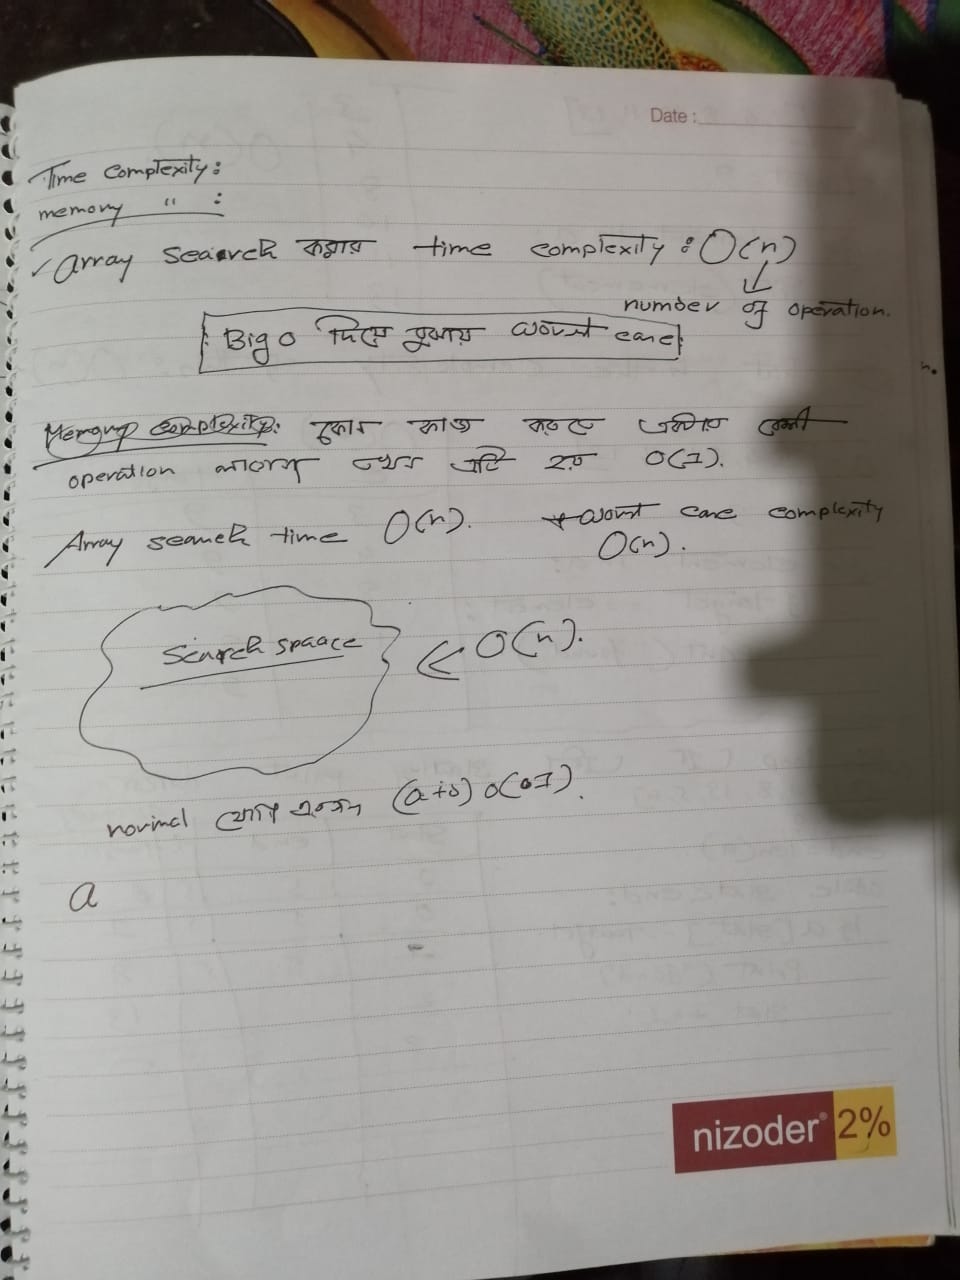 Date :
Time complexity :
memory " :
Array search করার time complexity : O(n)
number of operation.
Big O দিয়ে বুঝায় worst case
Memory complexity: কাজ করতে একটার বেশী
operation লাগেনা তখন এটি হয় O(1).
Array search time O(n). worst case complexity
O(n).
Search spaace O(n).
normal যোগ (a+b) O(1).
a
nizoder 2%